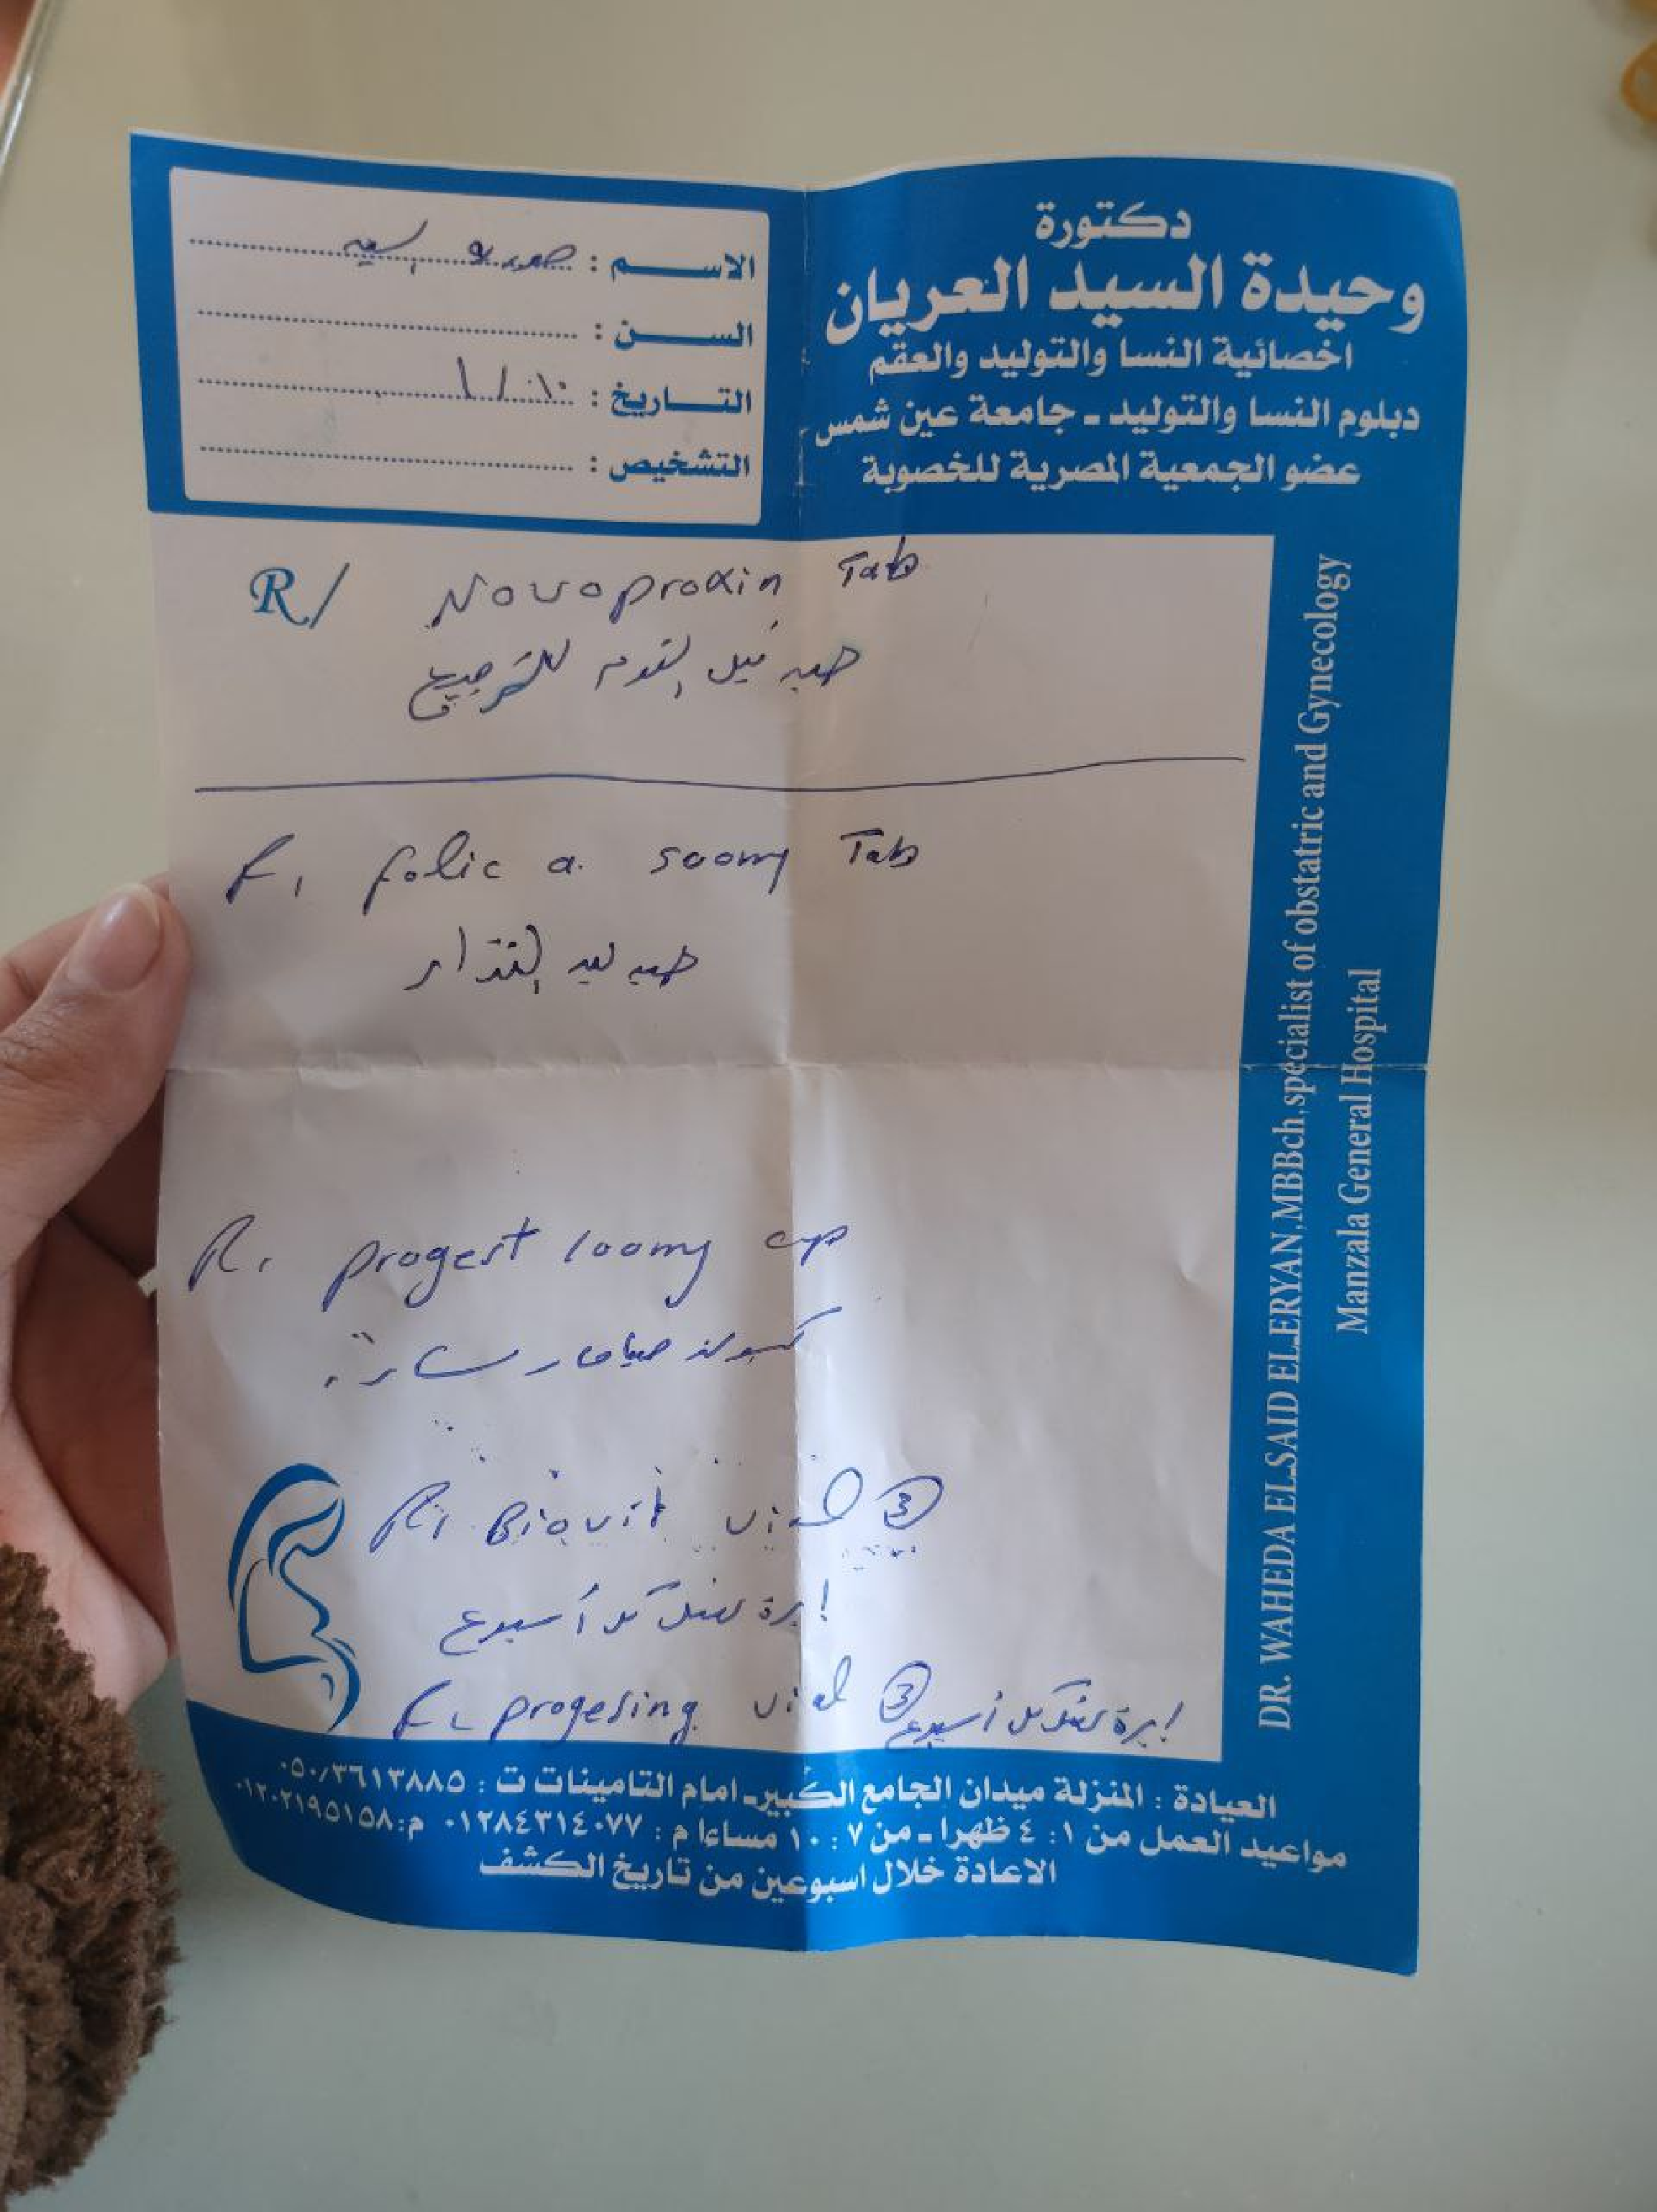 دكتورة
وحيدة السيد العريان
اخصائية النسا والتوليد والعقم
دبلوم النسا والتوليد - جامعة عين شمس
عضو الجمعية المصرية للخصوبة
الاســـم :
الســـن :
التـــاريخ : ١٠ / ١
التشخيص :
R/ Novoproxin Tab
حبه قبل النوم للترجيع
R, folic a. 500mg Tab
حبه بعد الغذاء
R, progest 100mg cap
كبسوله صباحا ومساء
R, Biovit vial ③
إبرة عضل كل أسبوع
R, progesing vial ③ إبرة عضل كل أسبوع
DR. WAHEDA ELSAID ELERYAN,MBBch,specialist of obstatric and Gynecology
Manzala General Hospital
العيادة : المنزلة ميدان الجامع الكبير - امام التامينات ت : ٠٥٠/٣٦١٣٨٨٥
مواعيد العمل من ١ : ٤ ظهرا - من ٧ : ١٠ مساءا م : ٠١٢٨٤٣١٤٠٧٧ م: ٠١٢٠٢١٩٥١٥٨
الاعادة خلال اسبوعين من تاريخ الكشف